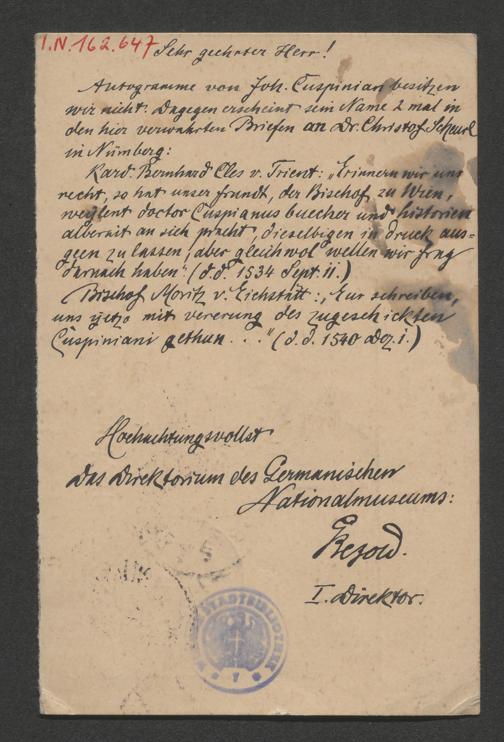 I.N. 162.647
Sehr geehrter Herr!
Autogramme von Joh. Cuspinian besitzen
wir nicht. Dagegen erscheint sein Name 2 mal in
den hier verwahrten Briefen an Dr. Christof Scheurl
in Nürnberg:
Kard. Bernhard Cles v. Trient: „Erinnern wir uns
recht, so hat unser frundt, der Bischof zu Wien,
weylent doctor Cuspianus buecher und historien
alberait an sich pracht, dieselbigen in druck aus=
geen zu lassen, aber gleichwol wellen wir frag
darnach haben“ (d.d. 1534 Sept. 11.)
Bischof Moritz v. Eichstätt: „Eur schreiben,
uns yetzo mit vererung des zugeschickten
Cuspiniani gethun . . .“ (d.d. 1540 Dez. 1.)
Hochachtungsvollst
Das Direktorium des Germanischen
Nationalmuseums:
Bezold.
I. Direktor.
STADTBIBLIOTHEK